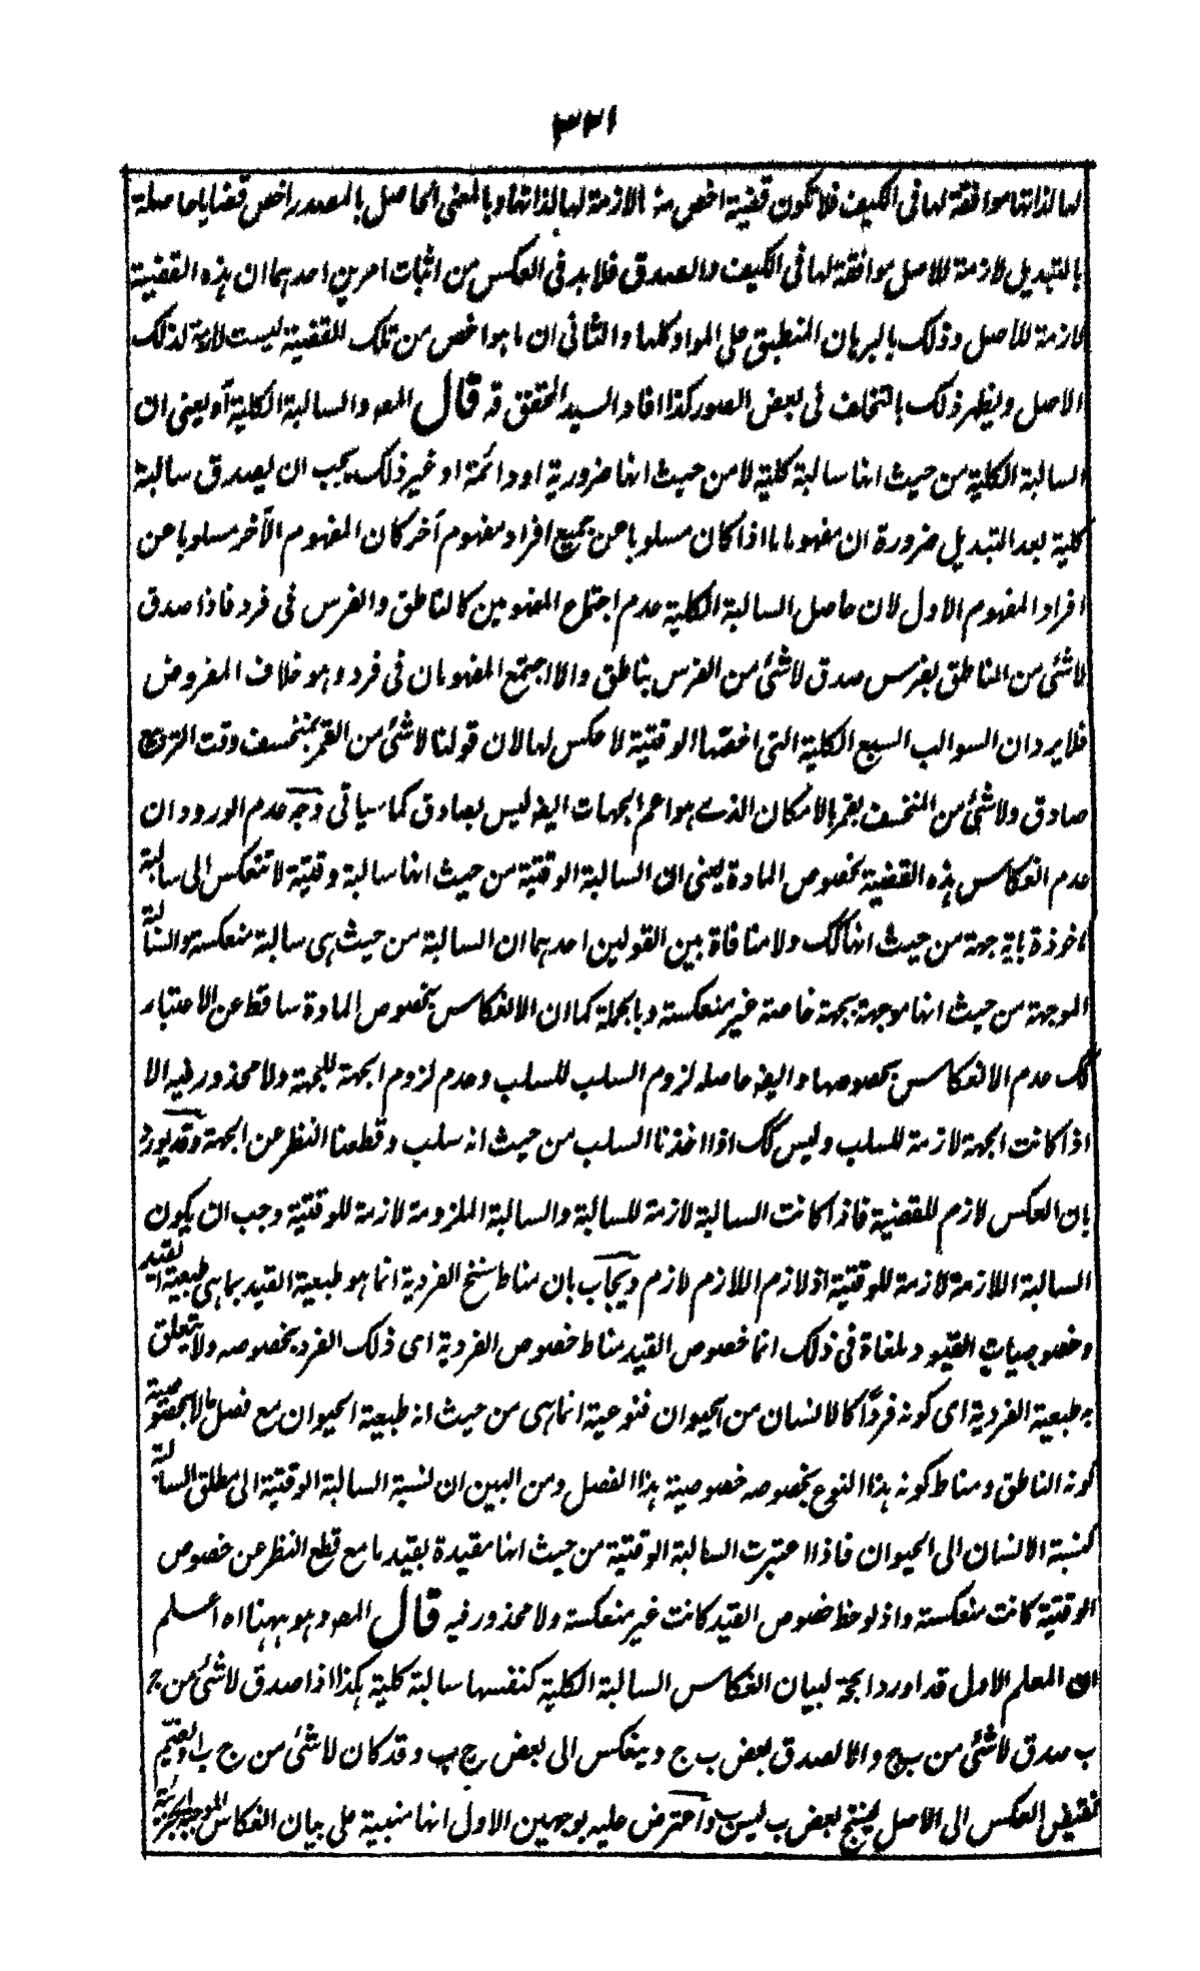 ٣٢١
لها لذاتها موافقة لها في الكيف فلا تكون قضية اخص منه لازمة لها لذاتها وبالمعنى الحاصل بالمصدر اخص قضايا حاصلة
بالتبديل لازمة للاصل موافقة لها في الكيف والصدق فلا بد في العكس من اثبات امرين احدهما ان هذه القضية
لازمة للاصل وذلك بالبرهان المنطبق على المواد كلها والثاني ان ما هو اخص من تلك القضية ليست لازمة لذلك
الاصل ويظهر ذلك بالتخلف في بعض الصور كذا افاد السيد المحقق قه قال المصـ والسالبة الكلية آه يعني ان
السالبة الكلية من حيث انها سالبة كلية لا من حيث انها ضرورية او دائمة او غير ذلك يجب ان يصدق سالبة
كلية بعد التبديل ضرورة ان مفهوما ما اذا كان مسلوبا عن جميع افراد مفهوم آخر كان المفهوم الآخر مسلوبا عن
افراد المفهوم الاول لان حاصل السالبة الكلية عدم اجتماع المفهومين كالناطق والفرس في فرد فاذا صدق
لا شئ من الناطق بفرس صدق لا شئ من الفرس بناطق والا اجتمع المفهومان في فرد وهو خلاف المفروض
فلا يرد ان السوالب السبع الكلية التي اخصها الوقتية لا عكس لها لان قولنا لا شئ من القمر بمنخسف وقت التربيع
صادق ولا شئ من المنخسف بقمر بالامكان الذے هو اعم الجهات ايضـ ليس بصادق كما سياتي وجه عدم الورود ان
عدم انعكاس هذه القضية بخصوص المادة يعني ان السالبة الوقتية من حيث انها سالبة وقتية لا تنعكس الى سالبة
ماخوذة باية جهة من حيث انها كك ولا منافاة بين القولين احدهما ان السالبة من حيث هي سالبة منعكسة والسالبة
الموجهة من حيث انها موجهة بجهة خاصة غير منعكسة وبالجملة كما ان الانعكاس بخصوص المادة ساقط عن الاعتبار
كك عدم الانعكاس بخصوصها وايضـ حاصله لزوم السلب للسلب وعدم لزوم الجهة للجهة ولا محذور فيه الا
اذا كانت الجهة لازمة للسلب وليس كك اذا اخذنا السلب من حيث انه سلب وقطعنا النظر عن الجهة وقد يورد
بان العكس لازم للقضية فاذا كانت السالبة لازمة للسالبة والسالبة الملزومة لازمة للوقتية وجب ان يكون
السالبة اللازمة لازمة للوقتية اذ لازم اللازم لازم ويجاب بان مناط سنخ الفردية انما هو طبيعة القيد بما هي طبيعة القيد
وخصوصيات القيود ملغاة في ذلك انما خصوص القيد مناط خصوص الفردية اى ذلك الفرد بخصوصه ولا يتعلق
به طبيعة الفردية اى كونه فردًا كالانسان من الحيوان فنوعية انما هي من حيث انه طبيعة الحيوان مع فصل ما لا بخصوصية
كونه الناطق ومناط كونه هذا النوع بخصوصه خصوصية هذا الفصل ومن البين ان نسبة السالبة الوقتية الى مطلق السالبة
كنسبة الانسان الى الحيوان فاذا اعتبرت السالبة الوقتية من حيث انها مقيدة بقيد ما مع قطع النظر عن خصوص
الوقتية كانت منعكسة واذ لوحظ خصوص القيد كانت غير منعكسة ولا محذور فيه قال المصـ وهو ههنا اه اعلم
ان المعلم الاول قد اورد الحجة لبيان انعكاس السالبة الكلية كنفسها سالبة كلية هكذا اذا صدق لا شئ من ج
ب صدق لا شئ من ب ج والا لصدق بعض ب ج وينعكس الى بعض ج ب وقد كان لا شئ من ج ب او يضم
نقيض العكس الى الاصل لينتج بعض ب ليس ب واعترض عليه بوجهين الاول انها مبنية على بيان انعكاس الموجبة الجزئية